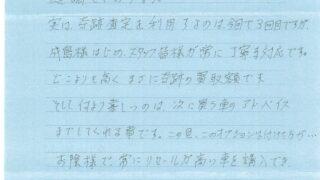 実は、奇跡査定を利用するのは今回で3回目ですが、
成島様はじめ、スタッフ皆様が常に丁寧な対応です。
どこよりも高く まさに奇跡の買取額です
そして何より嬉しいのは、次に買う車のアドバイス
までしてくれる事です。この色、このオプションは付けた方が…
お陰様で常にリセールが高い車を購入でき、